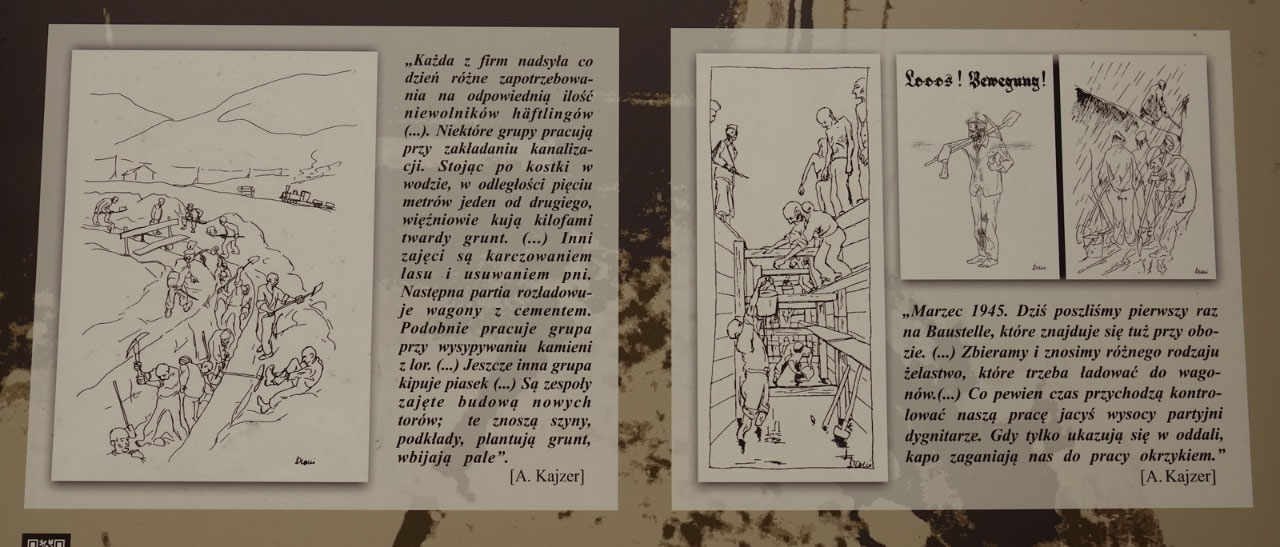 „Każda z firm nadsyła co
dzień różne zapotrzebowa-
nia na odpowiednią ilość
niewolników häftlingów
(...). Niektóre grupy pracują
przy zakładaniu kanaliza-
cji. Stojąc po kostki w
wodzie, w odległości pięciu
metrów jeden od drugiego,
więźniowie kują kilofami
twardy grunt. (...) Inni
zajęci są karczowaniem
lasu i usuwaniem pni.
Następna partia rozładowu-
je wagony z cementem.
Podobnie pracuje grupa
przy wysypywaniu kamieni
z lor. (...) Jeszcze inna grupa
kipuje piasek (...) Są zespoły
zajęte budową nowych
torów; te znoszą szyny,
podkłady, plantują grunt,
wbijają pale”.
[A. Kajzer]
Looos! Bewegung!
„Marzec 1945. Dziś poszliśmy pierwszy raz
na Baustelle, które znajduje się tuż przy obo-
zie. (...) Zbieramy i znosimy różnego rodzaju
żelastwo, które trzeba ładować do wago-
nów.(...) Co pewien czas przychodzą kontro-
lować naszą pracę jacyś wysocy partyjni
dygnitarze. Gdy tylko ukazują się w oddali,
kapo zaganiają nas do pracy okrzykiem.”
[A. Kajzer]